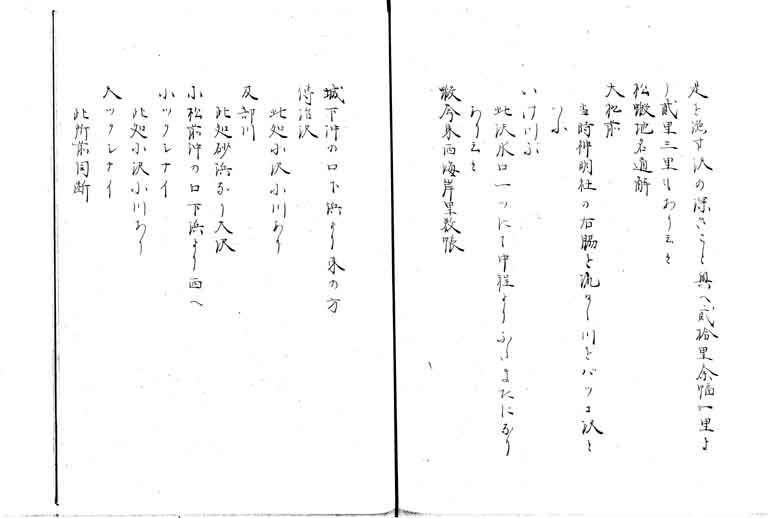 是を流す沢の深さこと奥へ貳拾里余幅一里よ
り貳里三里もありと云
松蝦地名通解
大松前
当時神明社の右脇を流るゝ川をバツコ沢と
いふ
いけつぷ
此沢水口一つにて中程より ふたまたになり
ありと云
蝦夷東西海岸里数帳
城下沖の口下浜より東の方
傳治沢
此処小沢小川あり
及部川
此処砂浜なり 大沢
小松前沖の口下浜より西へ
小ツクシナイ
此処小沢小川あり
大ツクシナイ
此所前同断